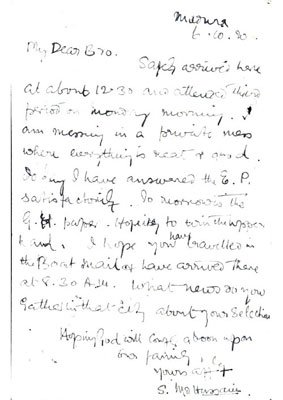 Madura
6.10.30.
My Dear Bro.
Safely arrived here
at about 12-30 and attended third
period on monday morning. I
am messing in a private mess
where everything is neat & good.
To day I have answered the E. P.
satisfactorily. To morrow is the
G. paper. Hoping to turn the upper
hand. I hope you have travelled in
the Boat mail & have arrived there
at 8.30 A.M. What news do you
gather in that City about your Selection
Hoping God will confer a boon upon
our family,
Yours aff
S.